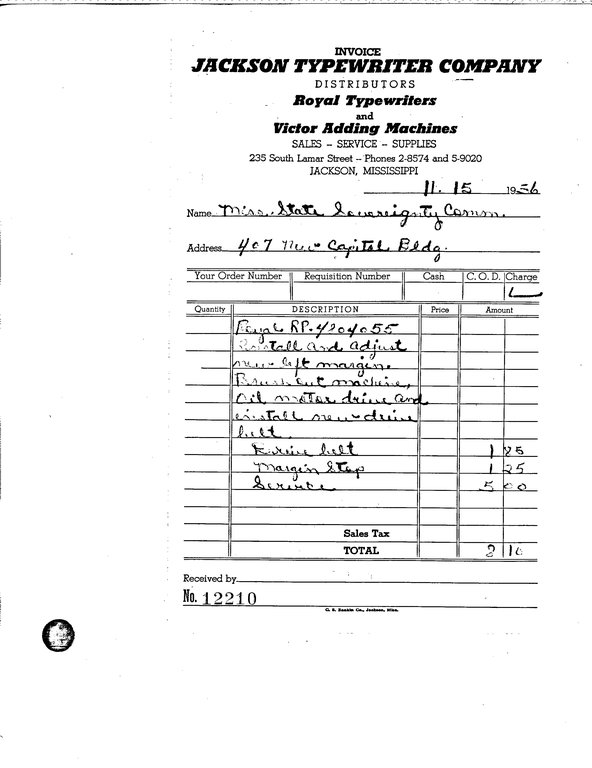 INVOICE
JACKSON TYPEWRITER COMPANY
DISTRIBUTORS
Royal Typewriters
and
Victor Adding Machines
SALES -- SERVICE -- SUPPLIES
235 South Lamar Street -- Phones 2-8574 and 5-9020
JACKSON, MISSISSIPPI
11. 15 1956
Name Miss. State Sovereignty Comm.
Address 407 New Capitol Bldg.
Your Order Number Requisition Number Cash C. O. D. Charge
Quantity DESCRIPTION Price Amount
Royal RP-4204055
install and adjust
new left margin.
Brush out machine,
Oil motor drive and
install new drive
belt.
Drive belt 1
Margin Stop 1 25
Service 5 00
Sales Tax
TOTAL
Received by
No. 12210
C. S. Rankin Co., Jackson, Miss.